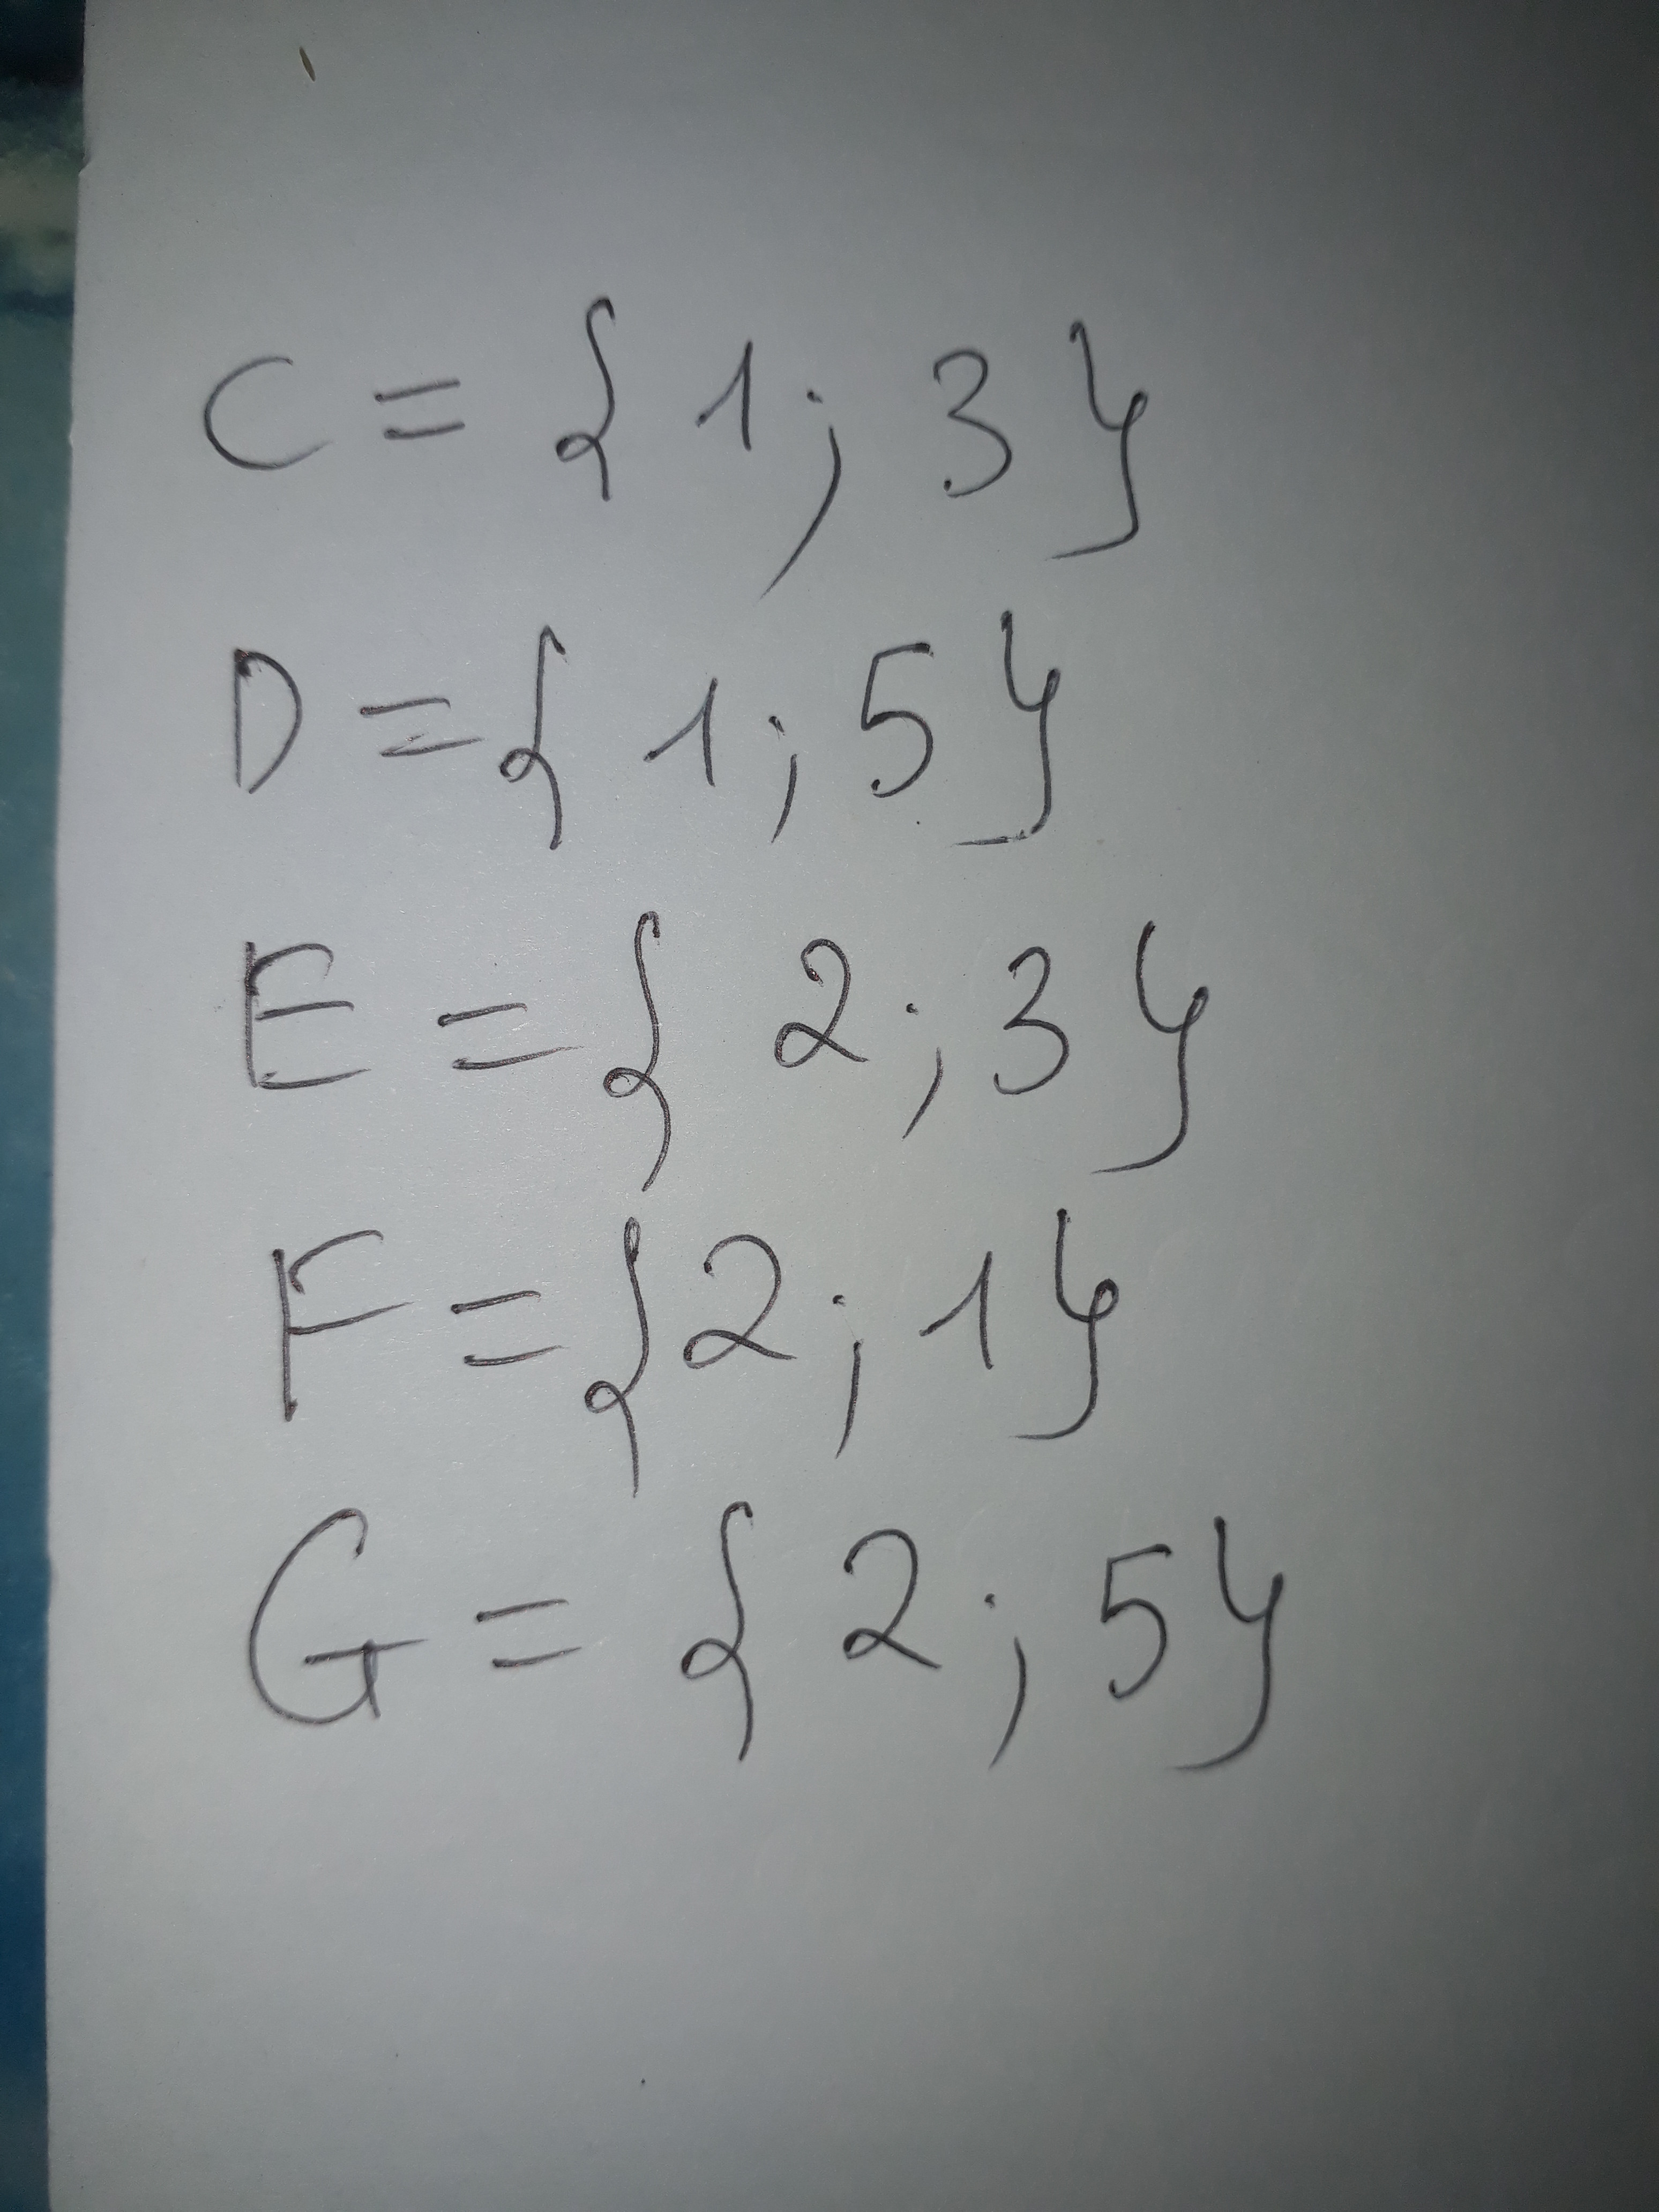 C = { 1 ; 3 }
D = { 1 ; 5 }
E = { 2 ; 3 }
F = { 2 ; 1 }
G = { 2 ; 5 }